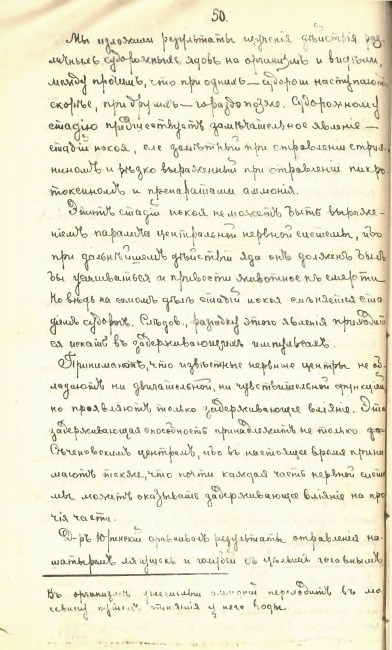 50.
Мы изложили результаты изученія дѣйствія раз-
личныхъ судорожныхъ ядовъ на организмъ и видѣли,
между прочимъ, что при однихъ — судороги наступаютъ
скорѣе, при другихъ — гораздо позже. Судорожному
стадію предшествуетъ замѣчательное явленіе —
стадій покоя, еле замѣтный при отравленіи стрих-
ниномъ и рѣзко выраженный при отравленіи пикро-
токсиномъ и препаратами аммонія.
Этотъ стадій покоя не можетъ быть выраже-
ніемъ паралича центральной нервной системы, ибо
при дальнѣйшемъ дѣйствіи яда онъ долженъ былъ
бы усиливаться и привести животное къ смерти.
Но вѣдь на самомъ дѣлѣ стадій покоя смѣняется ста-
діемъ судорогъ. Слѣдов., разгадку этого явленія приходит-
ся искать въ задерживающихъ импульсахъ.
Принимаютъ, что извѣстные нервные центры не об-
ладаютъ ни двигательной, ни чувствительной функціей,
но проявляютъ только задерживающее вліяніе. Эта
задерживающая способность принадлежитъ не только
Сѣченовскимъ центрамъ, ибо въ настоящее время прини-
маютъ также, что почти каждая часть нервной систе-
мы можетъ оказывать задерживающее вліяніе на про-
чія части.
Д-ръ Юринскій сравнивалъ результаты отравленія на-
шатыремъ лягушекъ и голубей съ цѣлымъ головнымъ
Въ организмѣ аммоній переходитъ въ мо-
чевину путемъ отнятія у него воды.